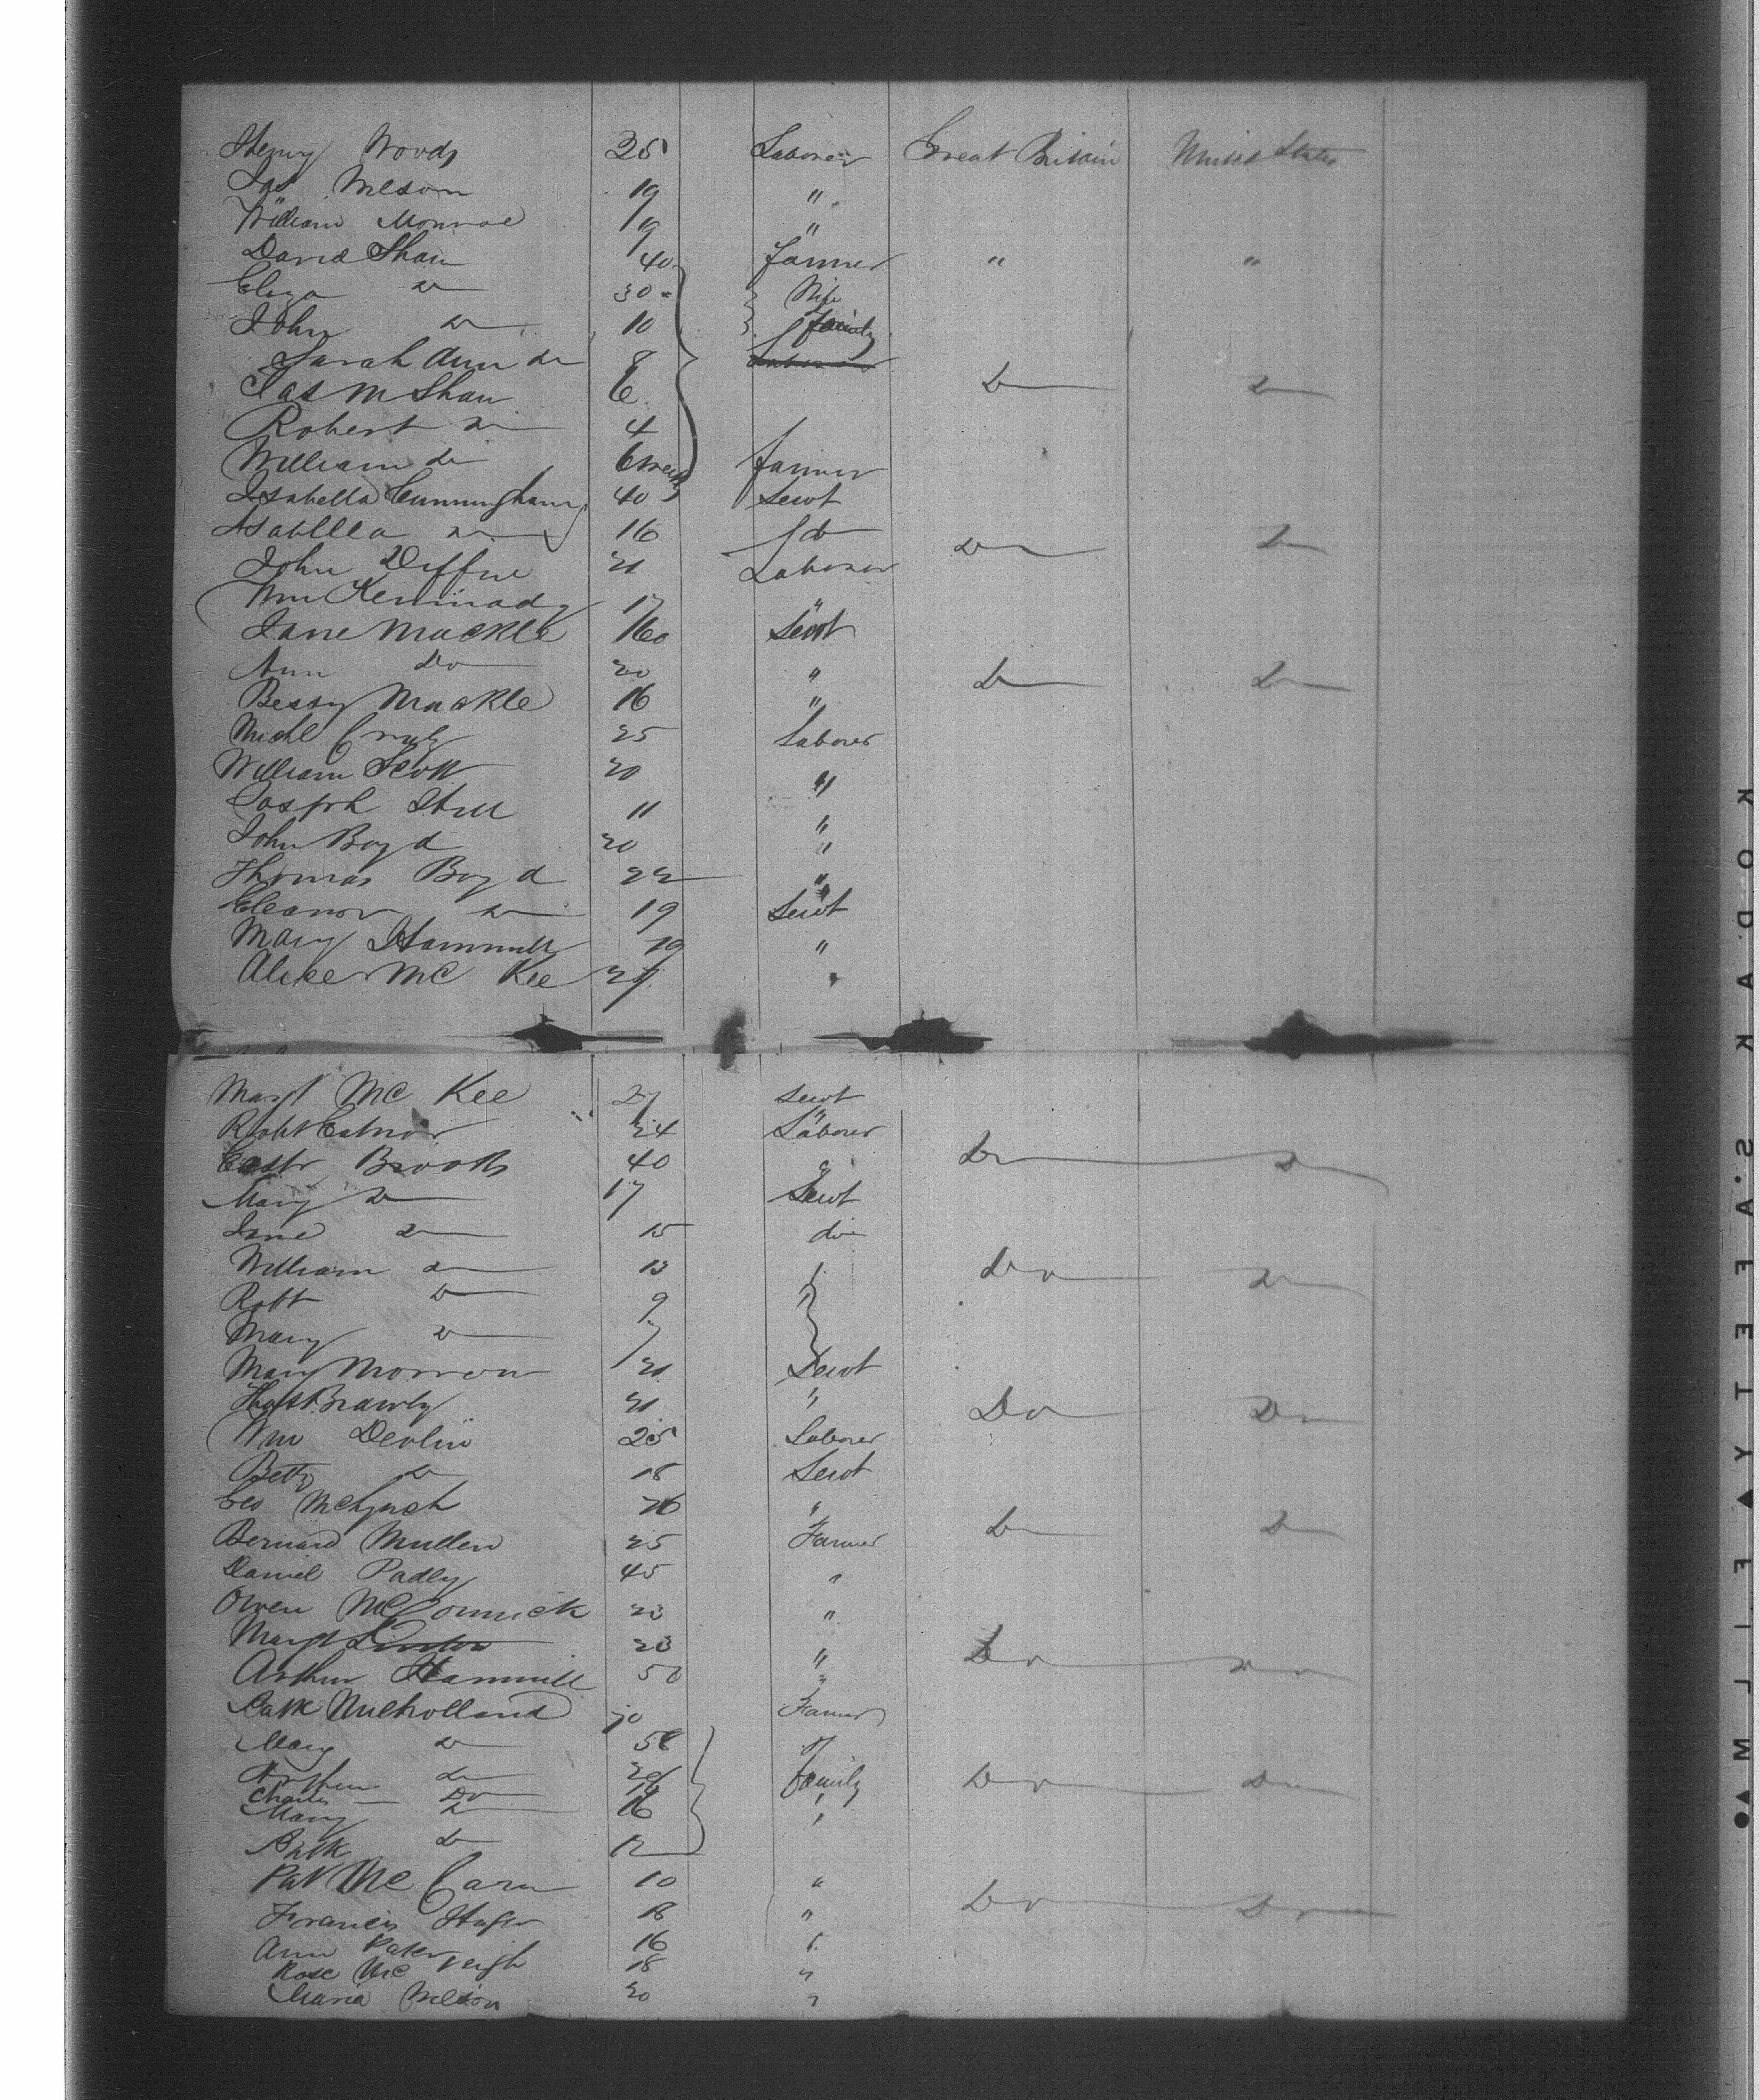 Henry Woods 25 Laborer Great Britain United States
Jas Wilson 19 "
William Monroe 19 "
David Shaw 40 farmer " "
Eliza Do 30 Wife
John Do 10 family
Sarah Ann do 8
Jas M Shaw 6 Do Do
Robert Do 4
William do 6 weeks farmer
Isabella Cunningham 40 Servt
Isabllla Do 16 do Do Do
John 21 Laborer
Wm 17 "
Jane Mackle 16 Servt
Ann Do 20 " Do Do
Bessy Mackle 16 "
Michl 25 Laborer
William Scott 20 "
Joseph 11 "
John Boyd 20 "
Thomas Boyd 22 "
Eleanor Do 19 Servt
Mary Hammill 19 "
Alice Mc Kee "
Margt Mc Kee 27 Servt
Robt 24 Laborer
Brooks 40 " Do Do
Mary Do 17 Servt
Jane Do 15 do
William Do 13 Do Do
Robt Do 9 "
Mary Do 7
Mary Morrow 21 Servt
Thos Brawly 21 " Do Do
Wm Devlin 25 Laborer
Betty Do 18 Servt
Geo McLynch "
Bernard Mullen 25 Farmer Do Do
Daniel Padly 45 "
Owen McCormick 23 "
Margt 23 " Do Do
Arthur Hammill 50 "
Patk Mulholland Farmer
Mary Do "
Arthur Do family Do Do
Charles Do "
Mary Do 16 "
Patk Do 12
Pat Mc Cann 10 " Do Do
Francis 18 "
Ann 16 "
Rose Mc Veigh 18 "
Maria Wilson 20 "
KODAK S.AFETY FILM